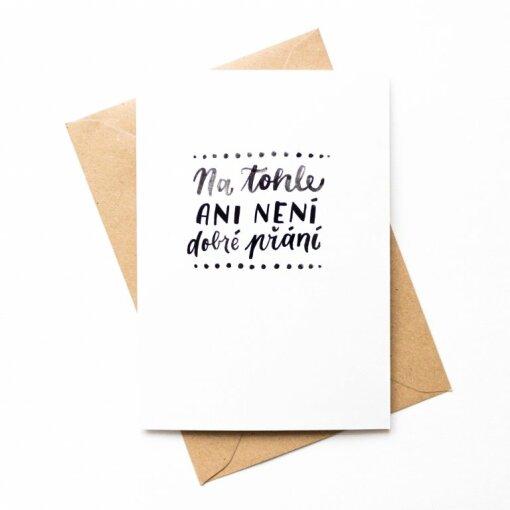 Na tohle
ANI NENÍ
dobré přání